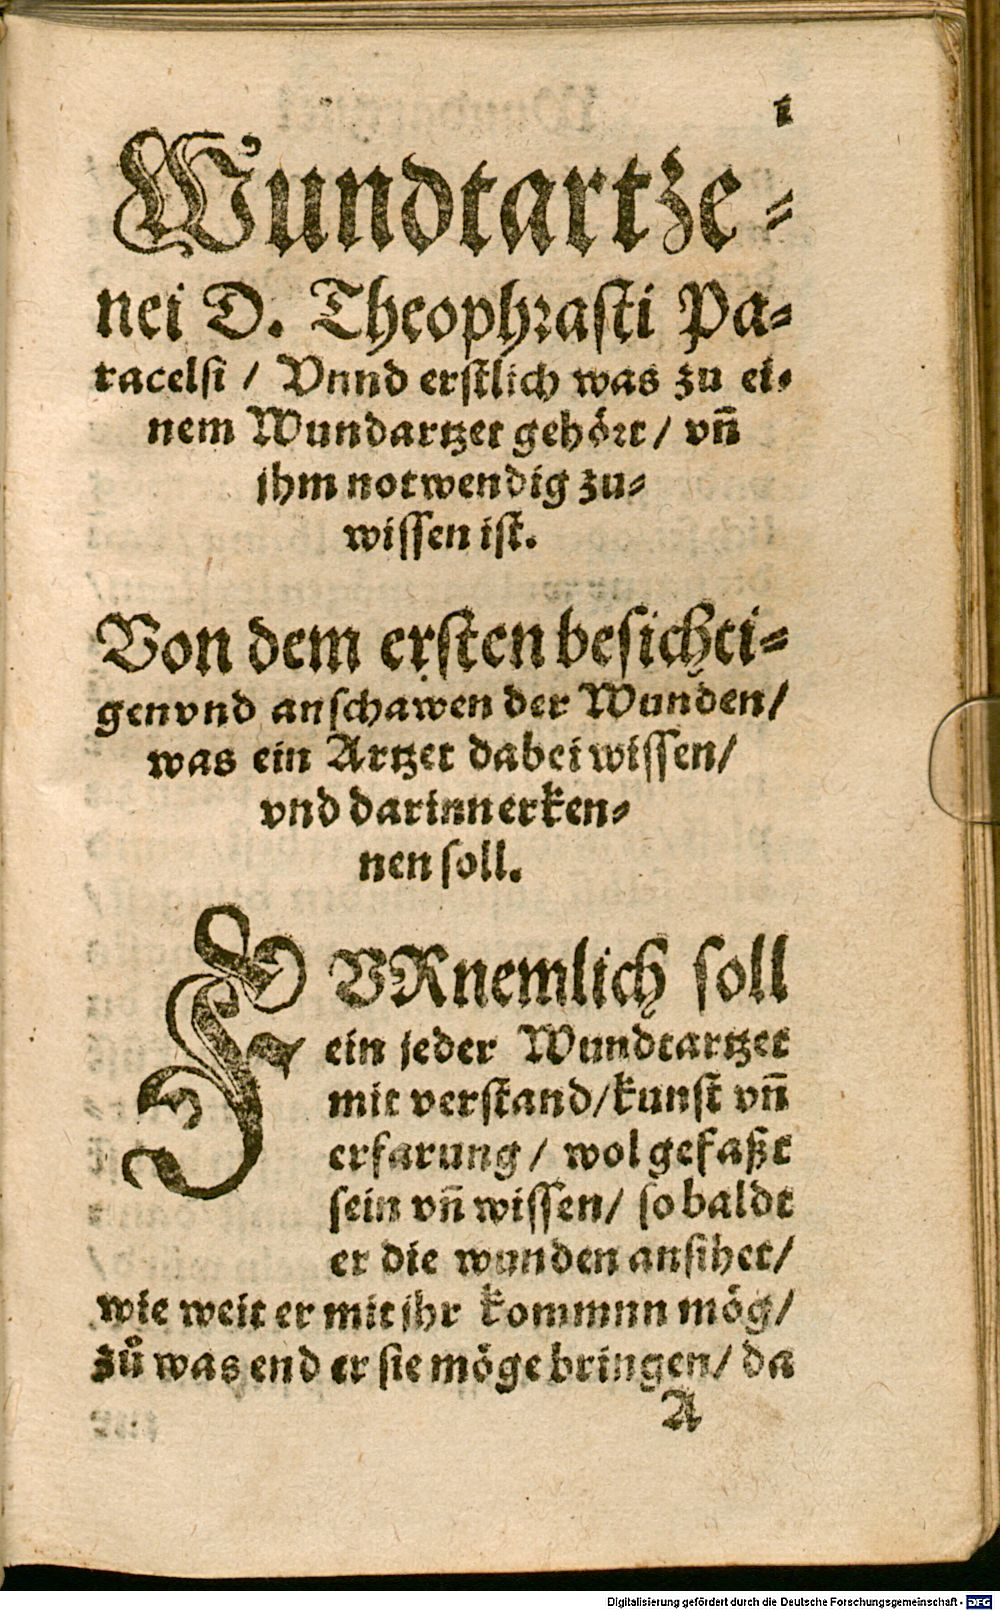 1
Wundtartze⸗
nei D. Theophꝛaſti Pa⸗
racelſi / Vnnd erſtlich was zu ei⸗
nem Wundartzet gehöꝛt / vn̄
jhm notwendig zu⸗
wiſſen iſt.
Von dem erſten beſichti⸗
gen vnd anſchawen der Wunden /
was ein Artzet dabei wiſſen /
vnd darinn erken⸗
nen ſoll.
FVRnemlich ſoll
ein jeder Wundtartzet
mit verſtand / kunſt vn̄
erfarung / wol gefaßt
ſein vn̄ wiſſen / ſo baldt
er die wunden anſihet /
wie weit er mit jhr kommnn mög /
zů was end er ſie möge bringen / da
A
Digitalisierung gefördert durch die Deutsche Forschungsgemeinschaft - DFG